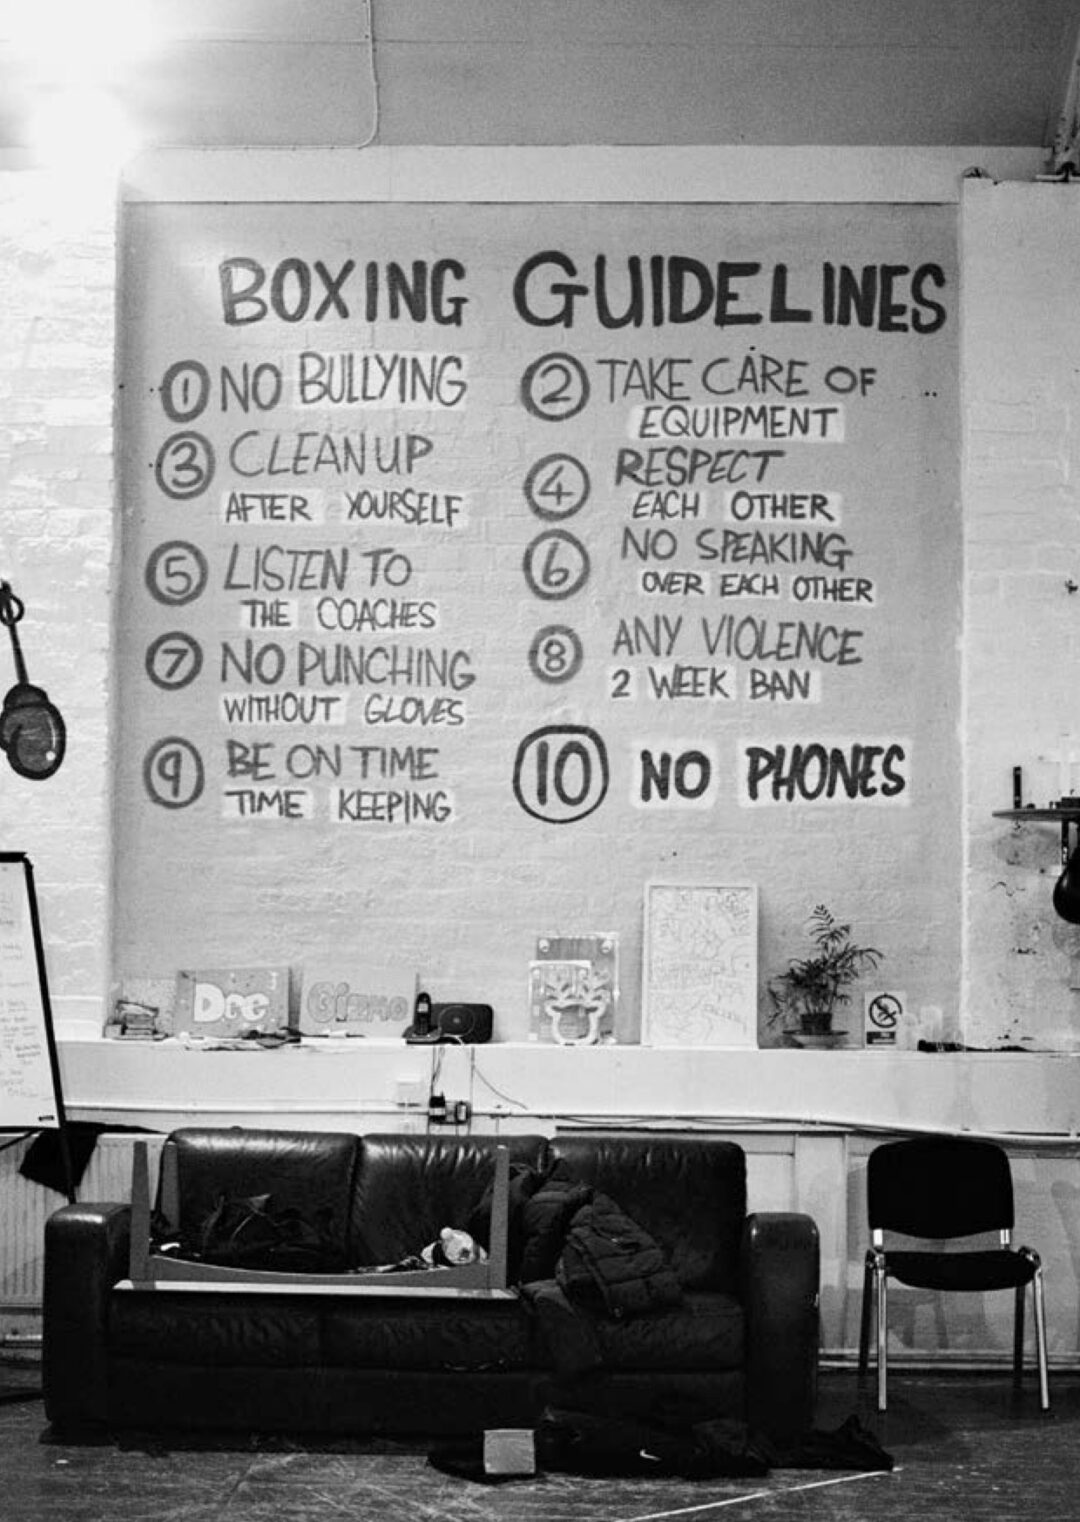 BOXING GUIDELINES
1 NO BULLYING
2 TAKE CARE OF
EQUIPMENT
3 CLEAN UP
AFTER YOURSELF
4 RESPECT
EACH OTHER
5 LISTEN TO
THE COACHES
6 NO SPEAKING
OVER EACH OTHER
7 NO PUNCHING
WITHOUT GLOVES
8 ANY VIOLENCE
2 WEEK BAN
9 BE ON TIME
TIME KEEPING
10 NO PHONES
Dee
Gizmo